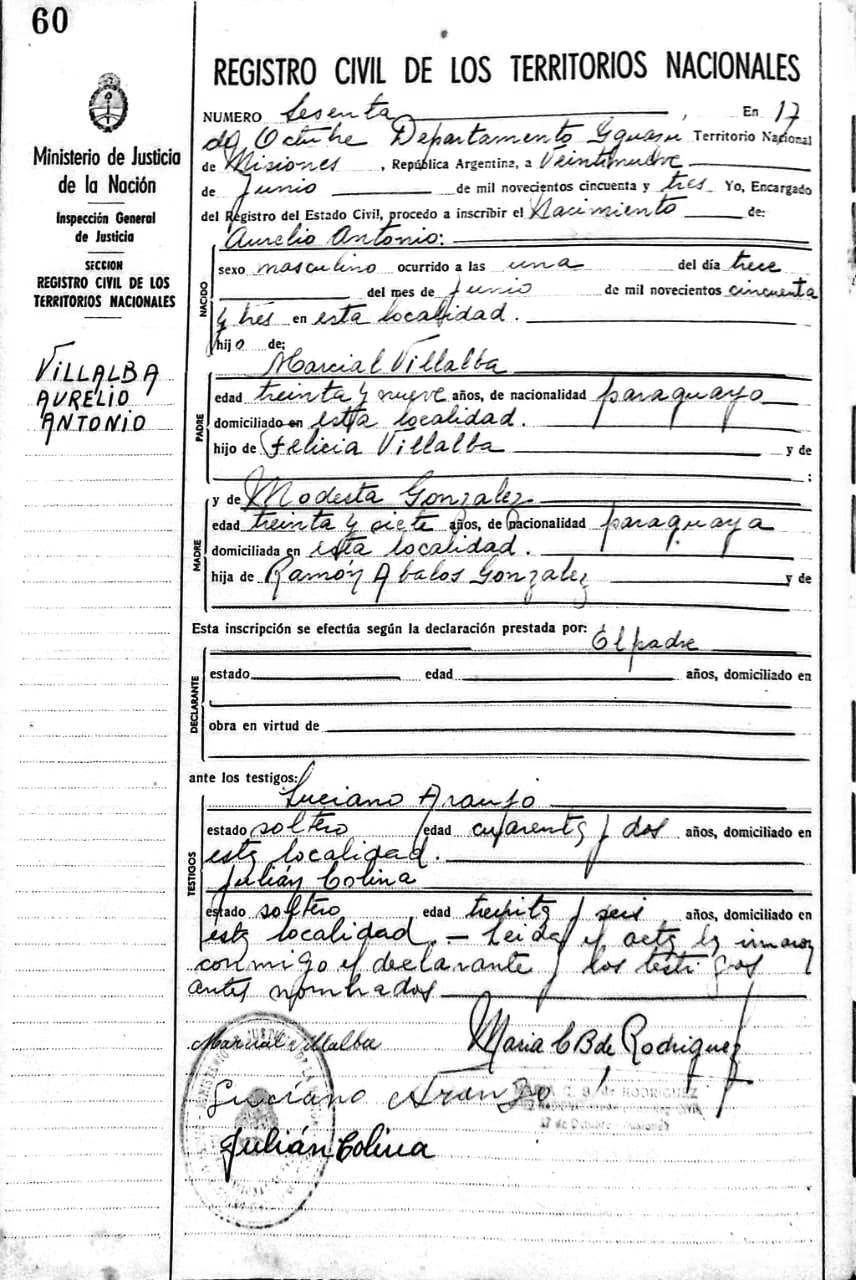 60
REGISTRO CIVIL DE LOS TERRITORIOS NACIONALES
Ministerio de Justicia
de la Nación
Inspección General
de Justicia
SECCION
REGISTRO CIVIL DE LOS
TERRITORIOS NACIONALES
VILLALBA
AURELIO
ANTONIO
NUMERO Sesenta, En 17
de Octubre Departamento Iguazu Territorio Nacional
de Misiones, República Argentina, a Veintinueve
de Junio de mil novecientos cincuenta y tres Yo, Encargado
del Registro del Estado Civil, procedo a inscribir el Nacimiento de:
Aurelio Antonio:
NACIDO
sexo masculino ocurrido a las una del día trece
del mes de Junio de mil novecientos cincuenta
y tres en esta localidad.
hijo de;
Marcial Villalba
PADRE
edad treinta y nueve años, de nacionalidad paraguayo
domiciliado en esta localidad.
hijo de Felicia Villalba y de
:
y de Modesta Gonzalez
MADRE
edad treinta y siete años, de nacionalidad paraguaya
domiciliada en esta localidad.
hija de Ramón Abalos Gonzalez y de
Esta inscripción se efectúa según la declaración prestada por: El padre
DECLARANTE
estado edad años, domiciliado en
obra en virtud de
ante los testigos:
Luciano Araujo
TESTIGOS
estado soltero edad cuarenta y dos años, domiciliado en
esta localidad.
Julián Colina
estado soltero edad treinta y seis años, domiciliado en
esta localidad. – Leida el acta la
conmigo el declarante y los testigos
antes nombrados
Marcial Villalba Maria C B de Rodriguez
Luciano Araujo
B. de RODRIGUEZ
17 de Octubre - Misiones
Julián Colina